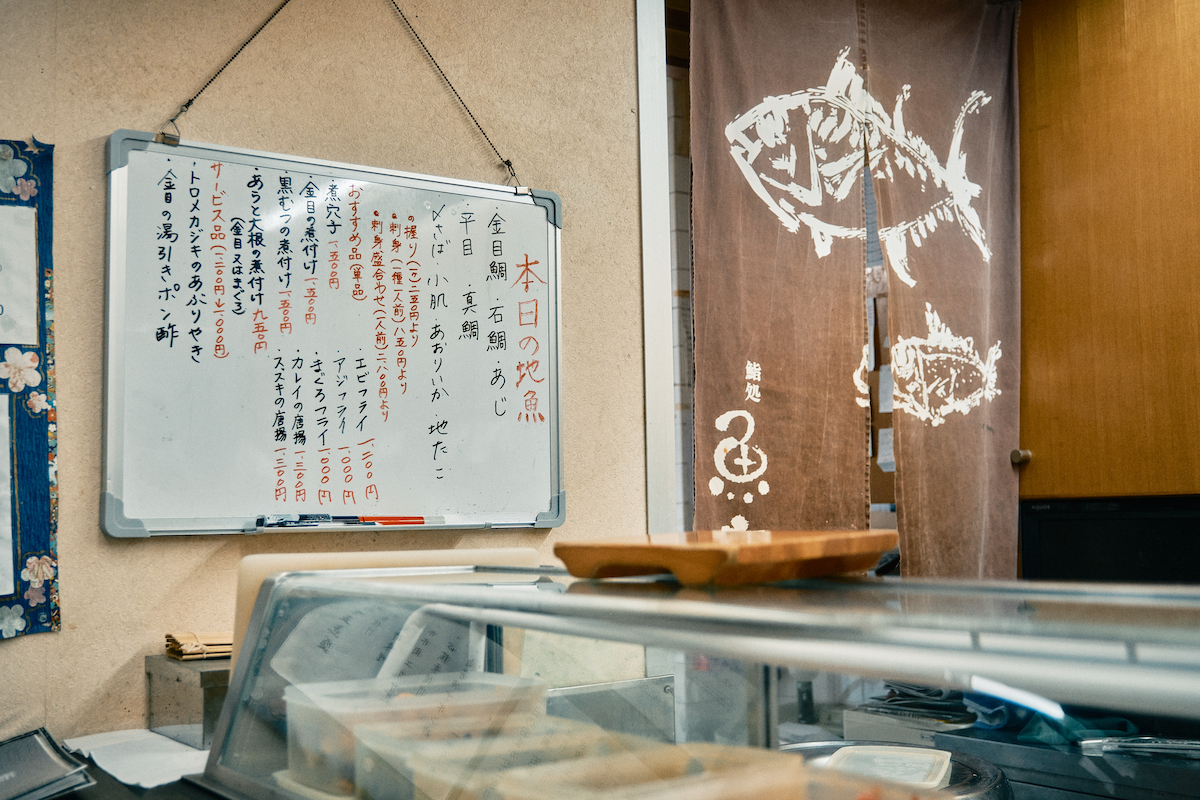 本日の地魚
・金目鯛・石鯛・あじ
・平目・真鯛
・〆さば・小肌・あおりいか・地たこ
●握り(一ヶ)二五〇円より
●刺身(一種一人前)八五〇円より
●刺身盛合わせ(一人前)二、八〇〇円より
おすすめ品(単品)
・煮穴子一、五〇〇円
・金目の煮付け一、五〇〇円
・黒むつの煮付け一、五〇〇円
・あらと大根の煮付け九五〇円
(金目又はまぐろ)
・エビフライ一、二〇〇円
・アジフライ一、〇〇〇円
・まぐろフライ一、〇〇〇円
・カレイの唐揚一、三〇〇円
・スズキの唐揚一、三〇〇円
サービス品(一、二〇〇円→一、〇〇〇円)
・トロメカジキのあぶりやき
・金目の湯引きポン酢
鮨処